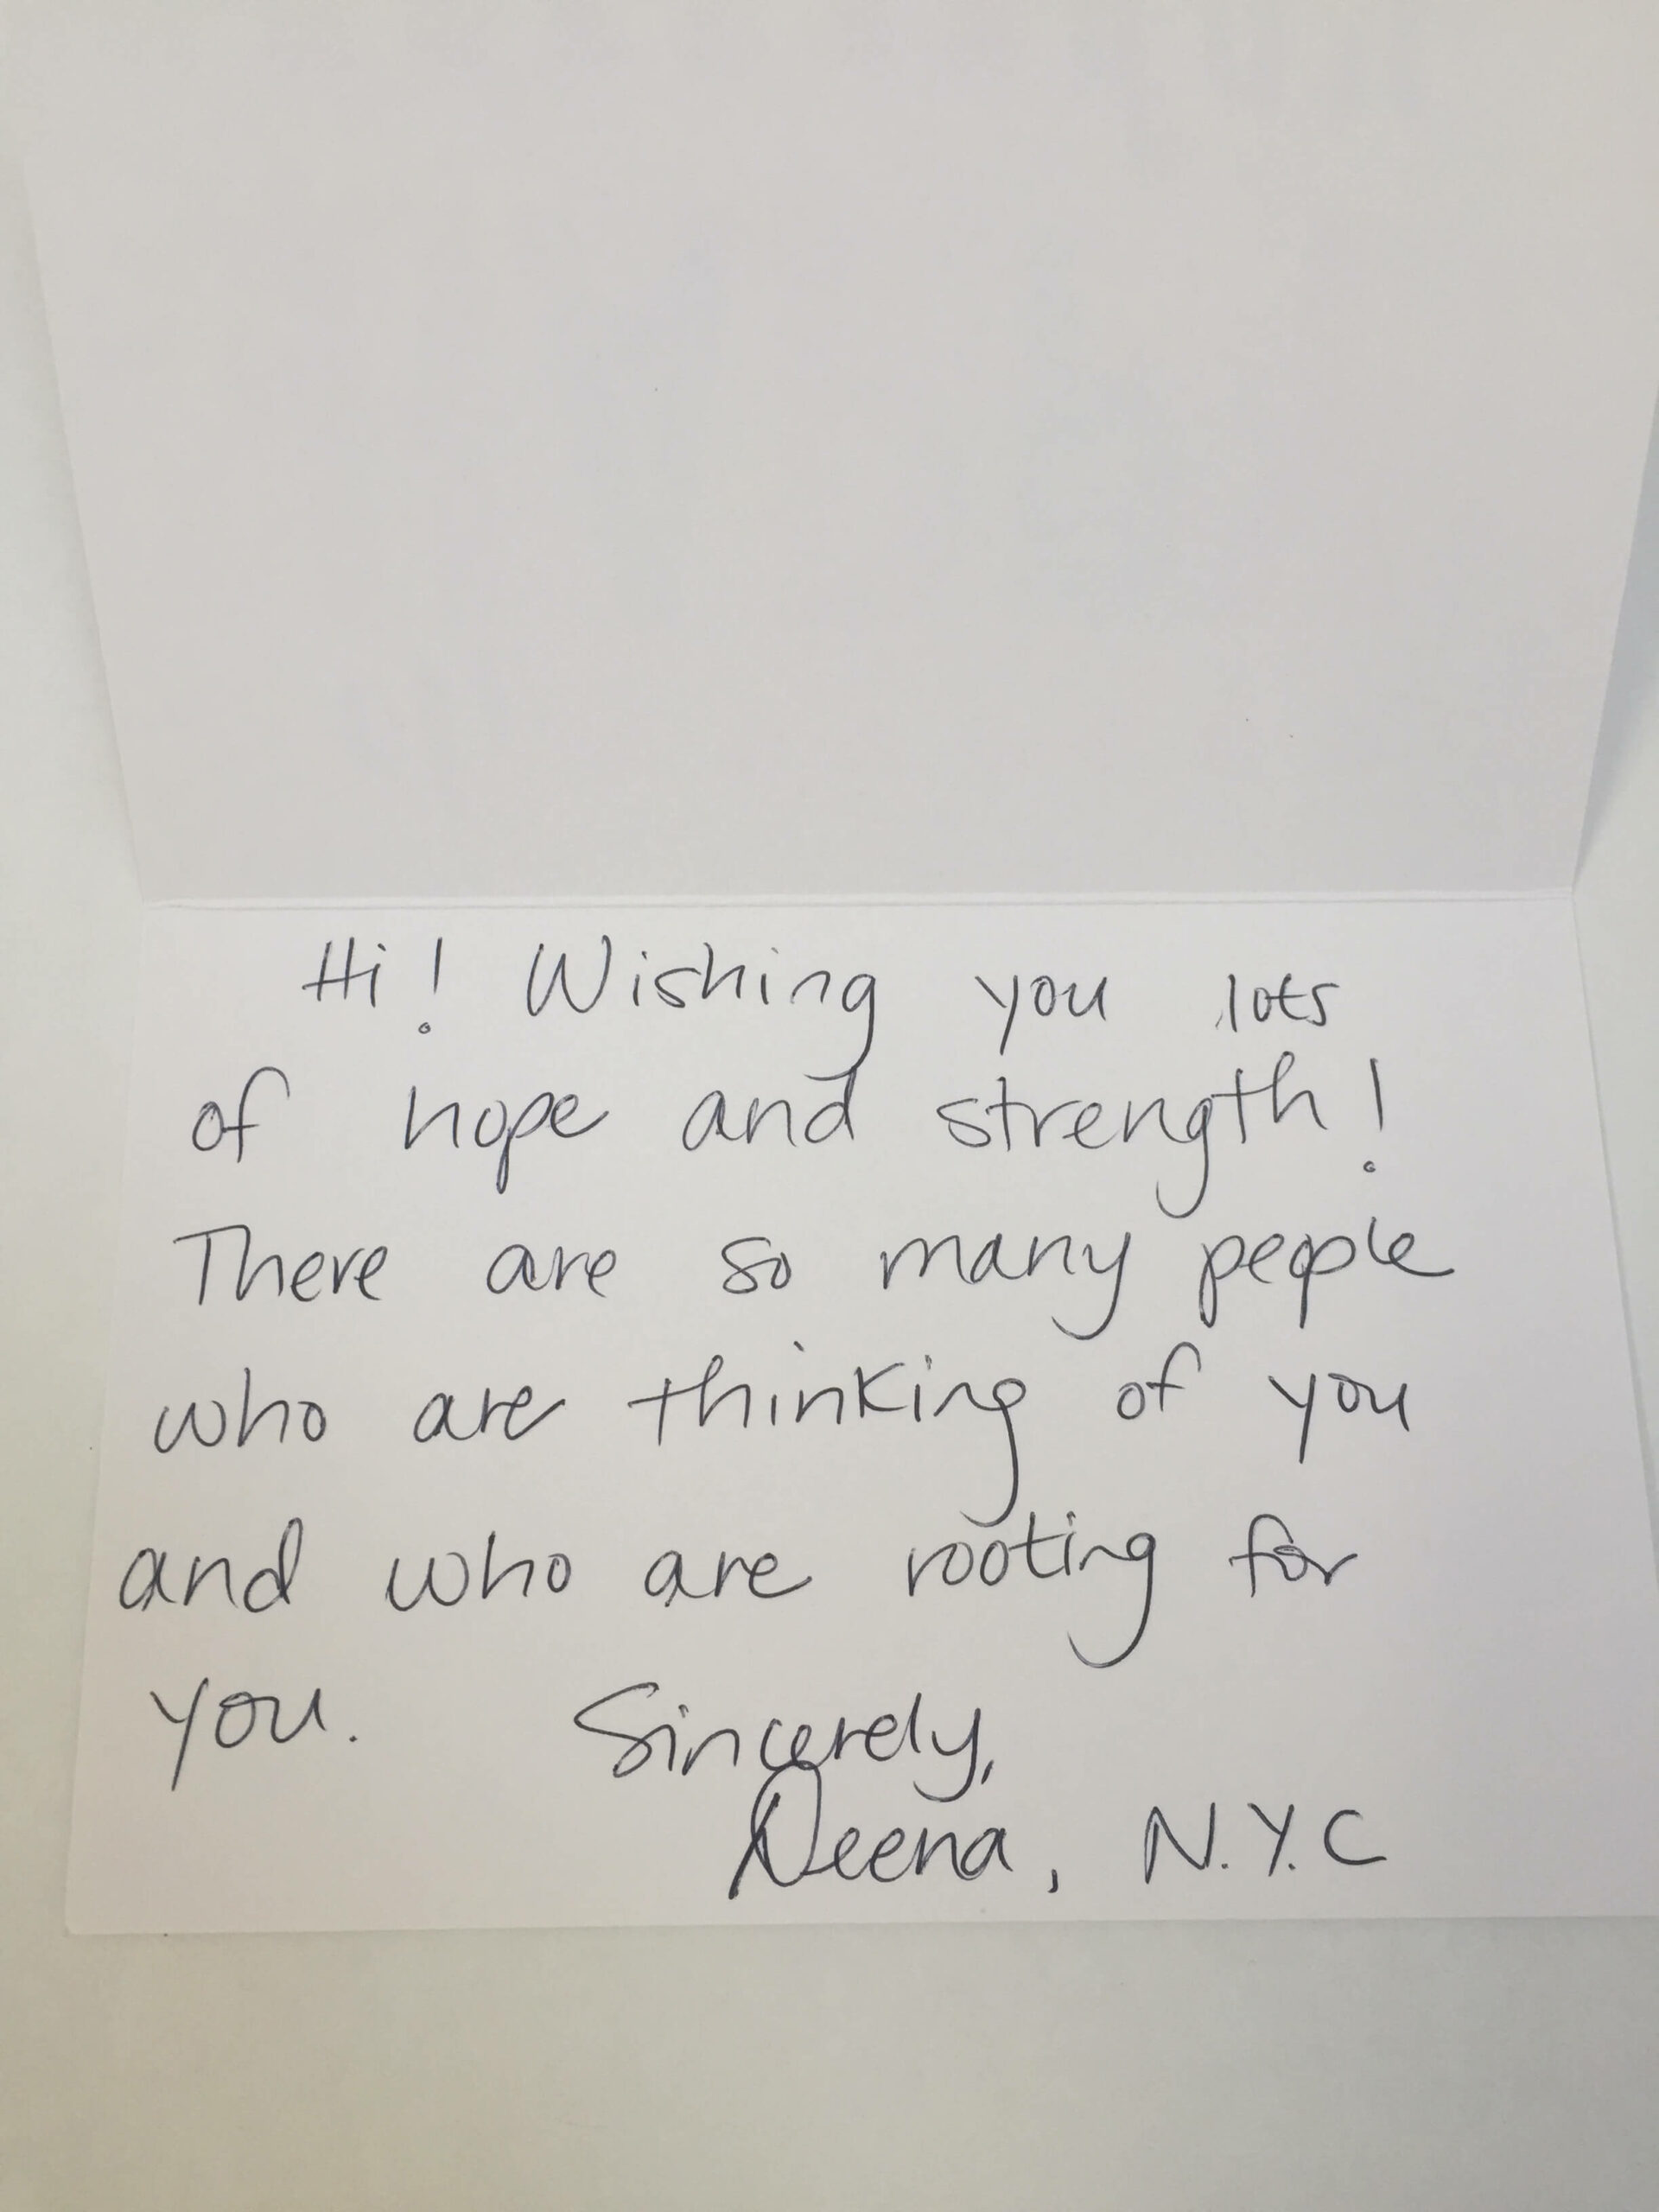 Hi! Wishing you lots
of hope and strength!
There are so many people
who are thinking of you
and who are rooting for
you. Sincerely,
Deena, N.Y.C